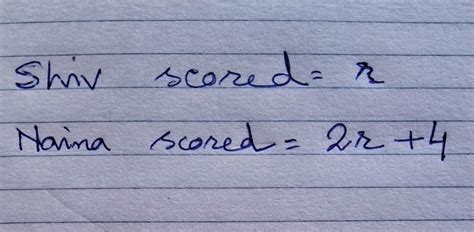 Shiv scored = r
Naina scored = 2r + 4